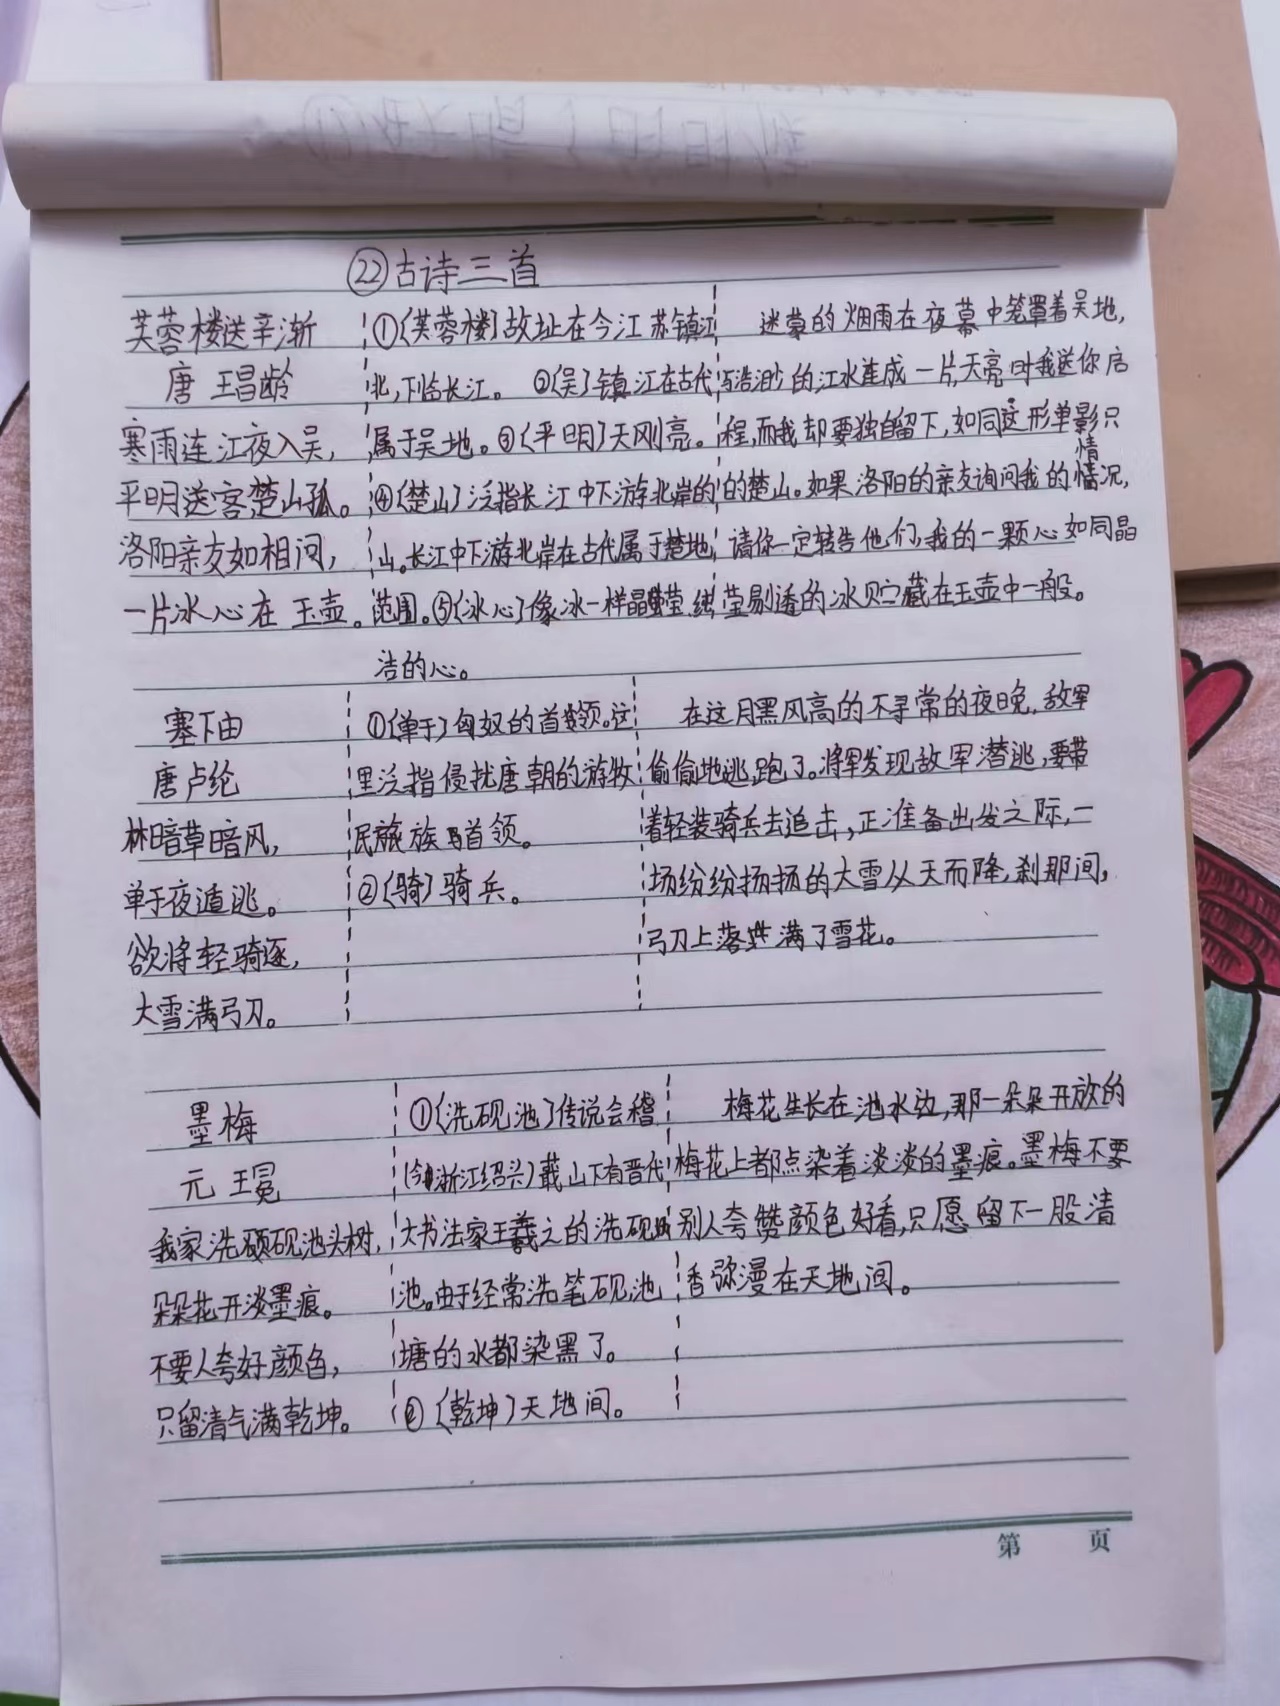 ㉒古诗三首
芙蓉楼送辛渐
唐 王昌龄
寒雨连江夜入吴，
平明送客楚山孤。
洛阳亲友如相问，
一片冰心在玉壶。
①〔芙蓉楼〕故址在今江苏镇江
北，下临长江。 ②〔吴〕镇江在古代
属于吴地。③〔平明〕天刚亮。
④〔楚山〕泛指长江中下游北岸的
山。长江中下游北岸在古代属于楚地
范围。⑤〔冰心〕像冰一样晶莹纯
洁的心。
迷蒙的烟雨在夜幕中笼罩着吴地，
与浩渺的江水连成一片，天亮时我送你启
程，而我却要独自留下，如同这形单影只
的楚山。如果洛阳的亲友询问我的情况，
请你一定转告他们，我的一颗心如同晶
莹剔透的冰贮藏在玉壶中一般。
塞下由
唐卢纶
林暗草暗风，
单于夜遁逃。
欲将轻骑逐，
大雪满弓刀。
①〔单于〕匈奴的首领。这
里泛指侵扰唐朝的游牧
民族首领。
②〔骑〕骑兵。
在这月黑风高的不寻常的夜晚，敌军
偷偷地逃跑了。将军发现敌军潜逃，要带
着轻装骑兵去追击，正准备出发之际，一
场纷纷扬扬的大雪从天而降，刹那间，
弓刀上落满了雪花。
墨梅
元 王冕
我家洗砚池头树，
朵朵花开淡墨痕。
不要人夸好颜色，
只留清气满乾坤。
①〔洗砚池〕传说会稽
(今浙江绍兴)蕺山下有晋代
大书法家王羲之的洗砚
池。由于经常洗笔砚，池
塘的水都染黑了。
②〔乾坤〕天地间。
梅花生长在池水边，那一朵朵开放的
梅花上都点染着淡淡的墨痕。墨梅不要
别人夸赞颜色好看，只愿留下一股清
香弥漫在天地间。
第 页